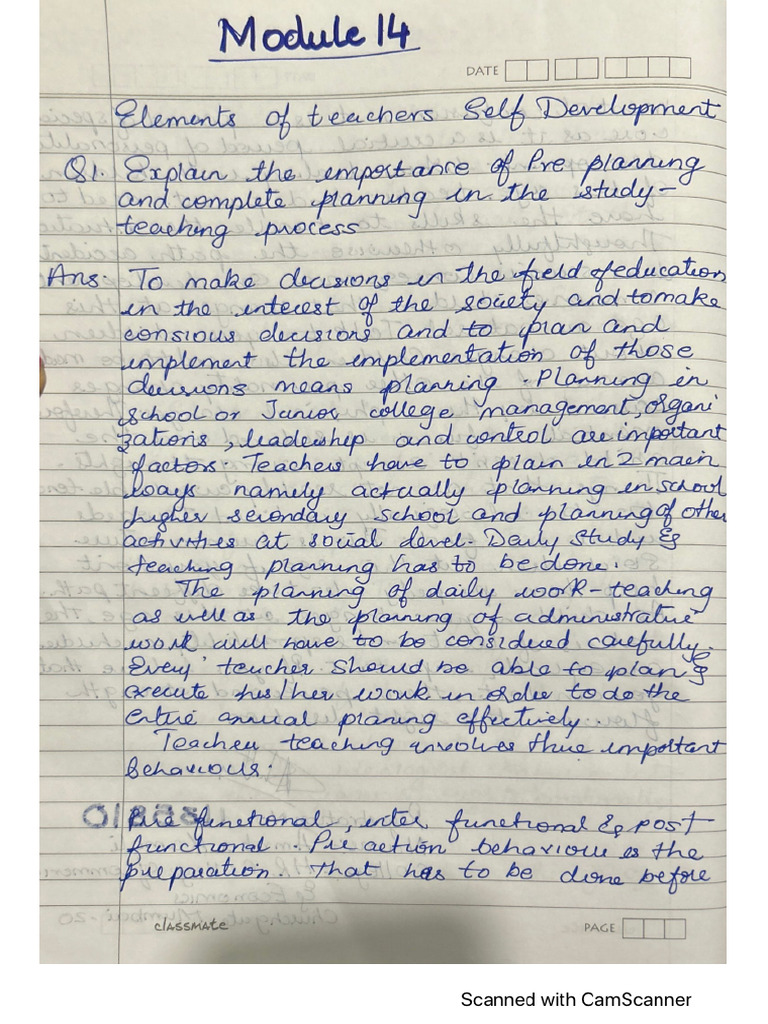 Module 14
DATE
Elements of teachers Self Development
Q1. Explain the importance of Pre planning
and complete planning in the study-
teaching process
Ans: To make decisions in the field of education
in the interest of the society and to make
consious decisions and to plan and
implement the implementation of those
decisions means planning. Planning in
school or Junior college management, organi
zations, leadership and control are important
factors. Teachers have to plain in 2 main
ways namely actually planning in school
higher secondary school and planning of other
activities at social level. Daily study &
teaching planning has to be done.
The planning of daily work-teaching
as well as the planning of administrative
work will have to be considered carefully.
Every teacher should be able to plan &
execute his/her work in order to do the
entire annual planing effectively.
Teacher teaching involves three important
Behaviours:
Pre functional, inter functional & post
functional. Pre action behaviour is the
preparation. That has to be done before
classmate
PAGE
Scanned with CamScanner